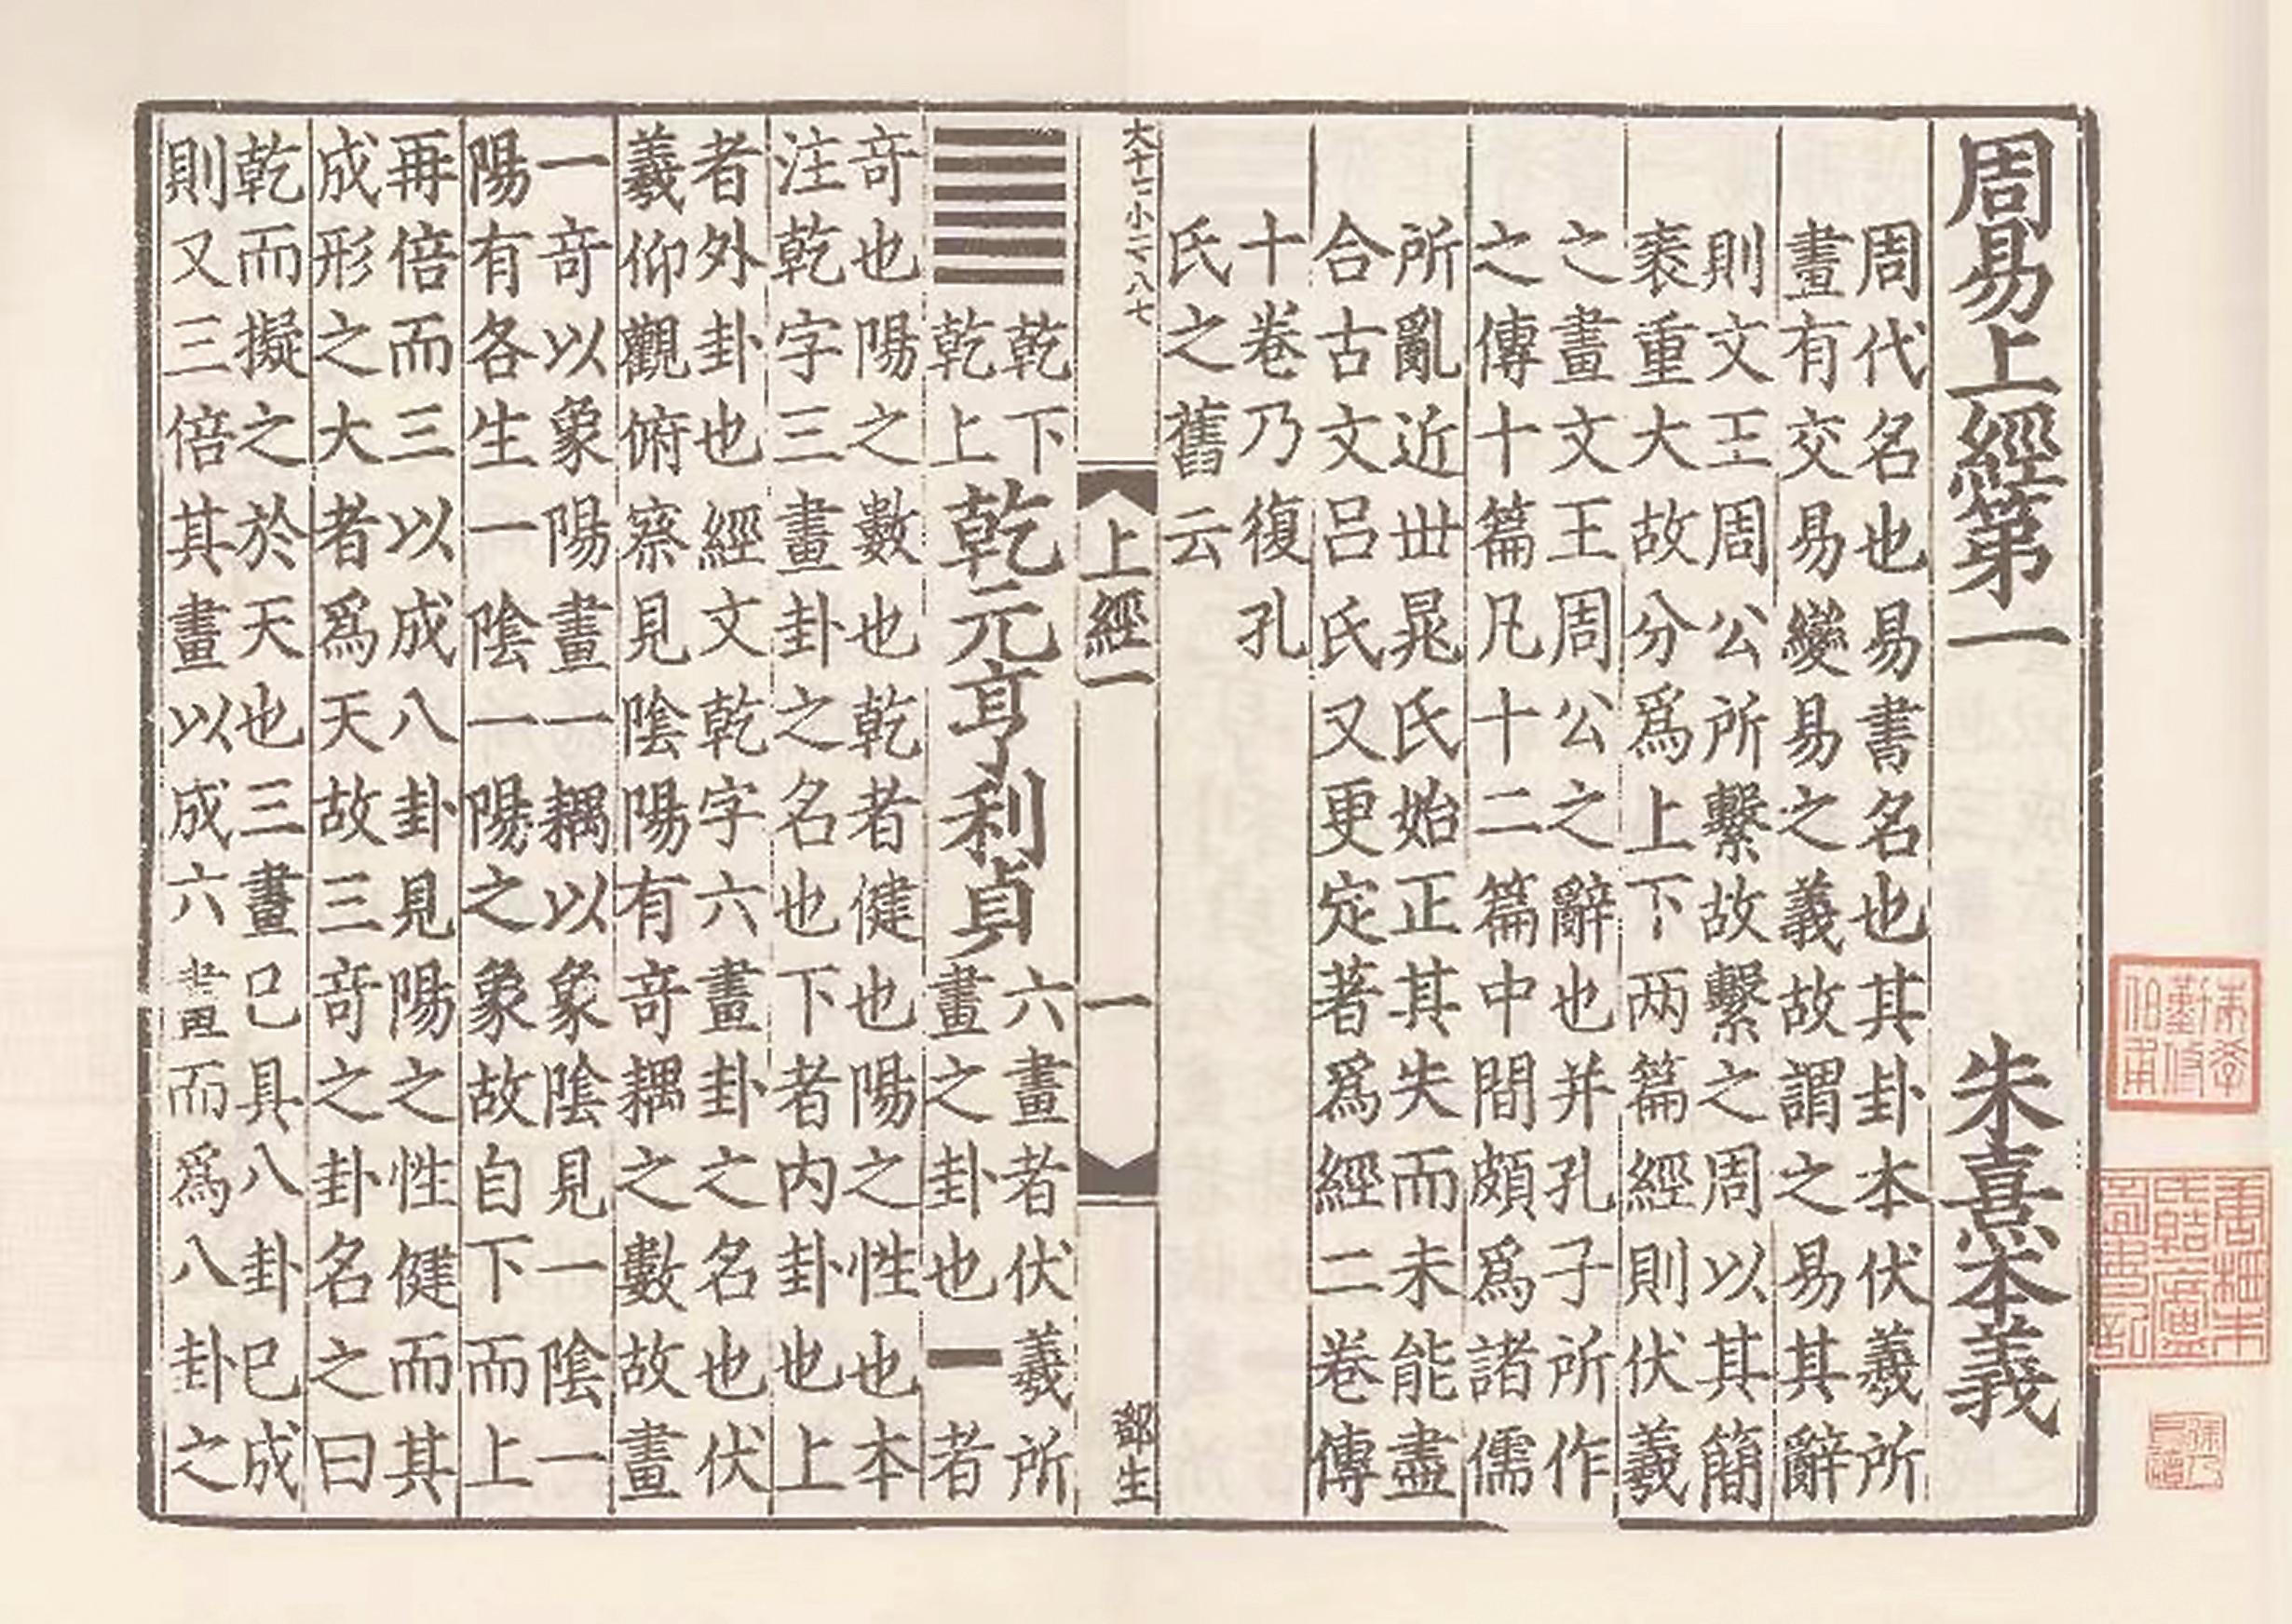 周易上經第一 朱熹本義
周代名也易書名也其卦本伏羲所
畫有交易變易之義故謂之易其辭
則文王周公所繫故繫之周以其簡
袠重大故分爲上下两篇經則伏羲
之畫文王周公之辭也并孔子所作
之傳十篇凡十二篇中間頗爲諸儒
所亂近丗晁氏始正其失而未能盡
合古文吕氏又更㝎著爲經二巻傳
十巻乃復孔
氏之舊云
上經一
一
䷀
乾下
乾上
乾元亨利貞
六畫者伏羲所
畫之卦也一者
竒也陽之數也乾者健也陽之性也本
注乾字三畫卦之名也下者内卦也上
者外卦也經文乾字六畫卦之名也伏
羲仰觀俯察見陰陽有竒耦之數故畫
一竒以象陽畫一耦以象陰見一陰一
陽有各生一陰一陽之象故自下而上
再倍而三以成八卦見陽之性健而其
成形之大者爲天故三竒之卦名之曰
乾而擬之於天也三畫已具八卦已成
則又三倍其畫以成六畫而爲八卦之